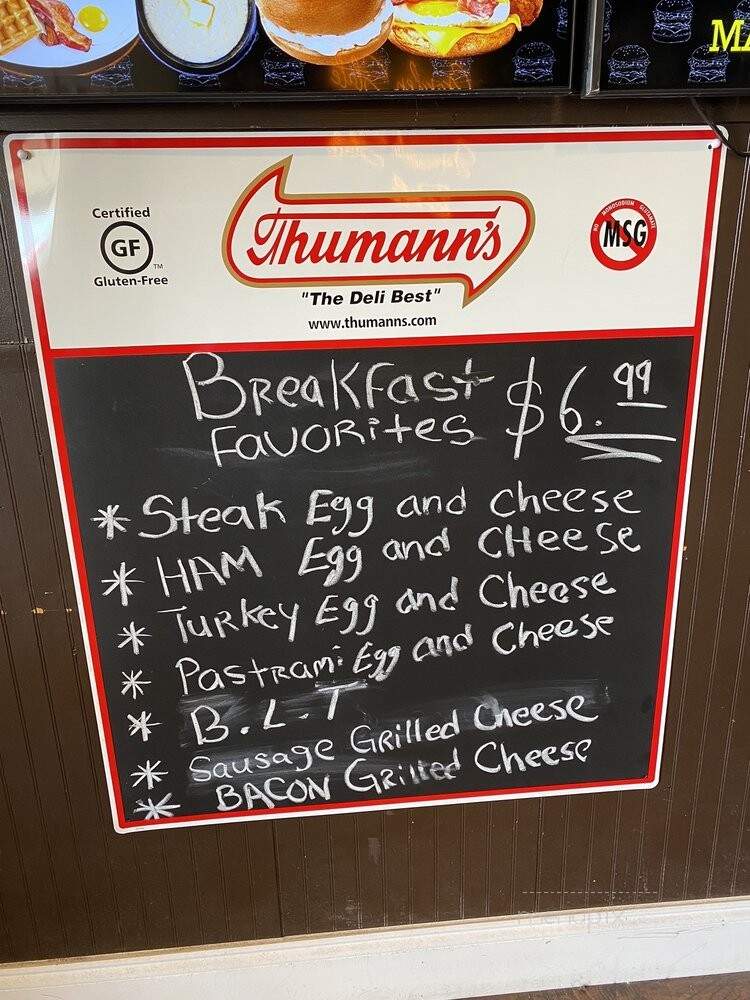 MA
Certified
GF
TM
Gluten-Free
Thumann's
"The Deli Best"
www.thumanns.com
NO MONOSODIUM GLUTAMATE
MSG
Breakfast $6.99
Favorites
* Steak Egg and cheese
* HAM Egg and CHeese
* Turkey Egg and Cheese
* Pastrami Egg and Cheese
* B.L.T
* Sausage Grilled Cheese
* BACON Grilled Cheese